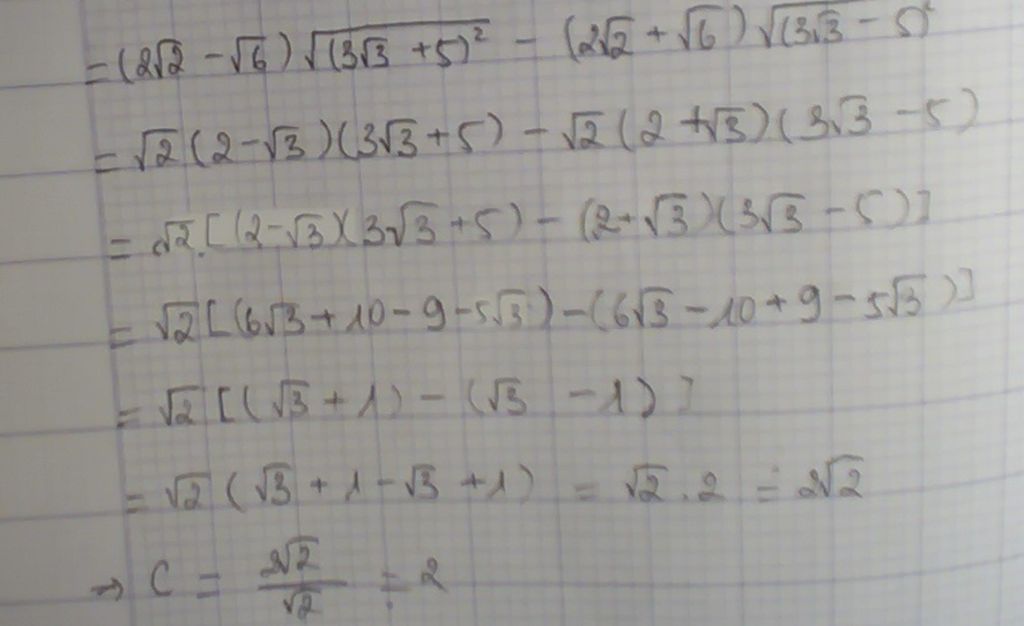 = (2√2 - √6) √(3√3 + 5)² - (2√2 + √6) √(3√3 - 5)²
= √2 (2 - √3)(3√3 + 5) - √2 (2 + √3)(3√3 - 5)
= √2. [(2 - √3)(3√3 + 5) - (2 + √3)(3√3 - 5)]
= √2 [(6√3 + 10 - 9 - 5√3) - (6√3 - 10 + 9 - 5√3)]
= √2 [(√3 + 1) - (√3 - 1)]
= √2 (√3 + 1 - √3 + 1) = √2 . 2 = 2√2
→ C = 2√2/√2 = 2